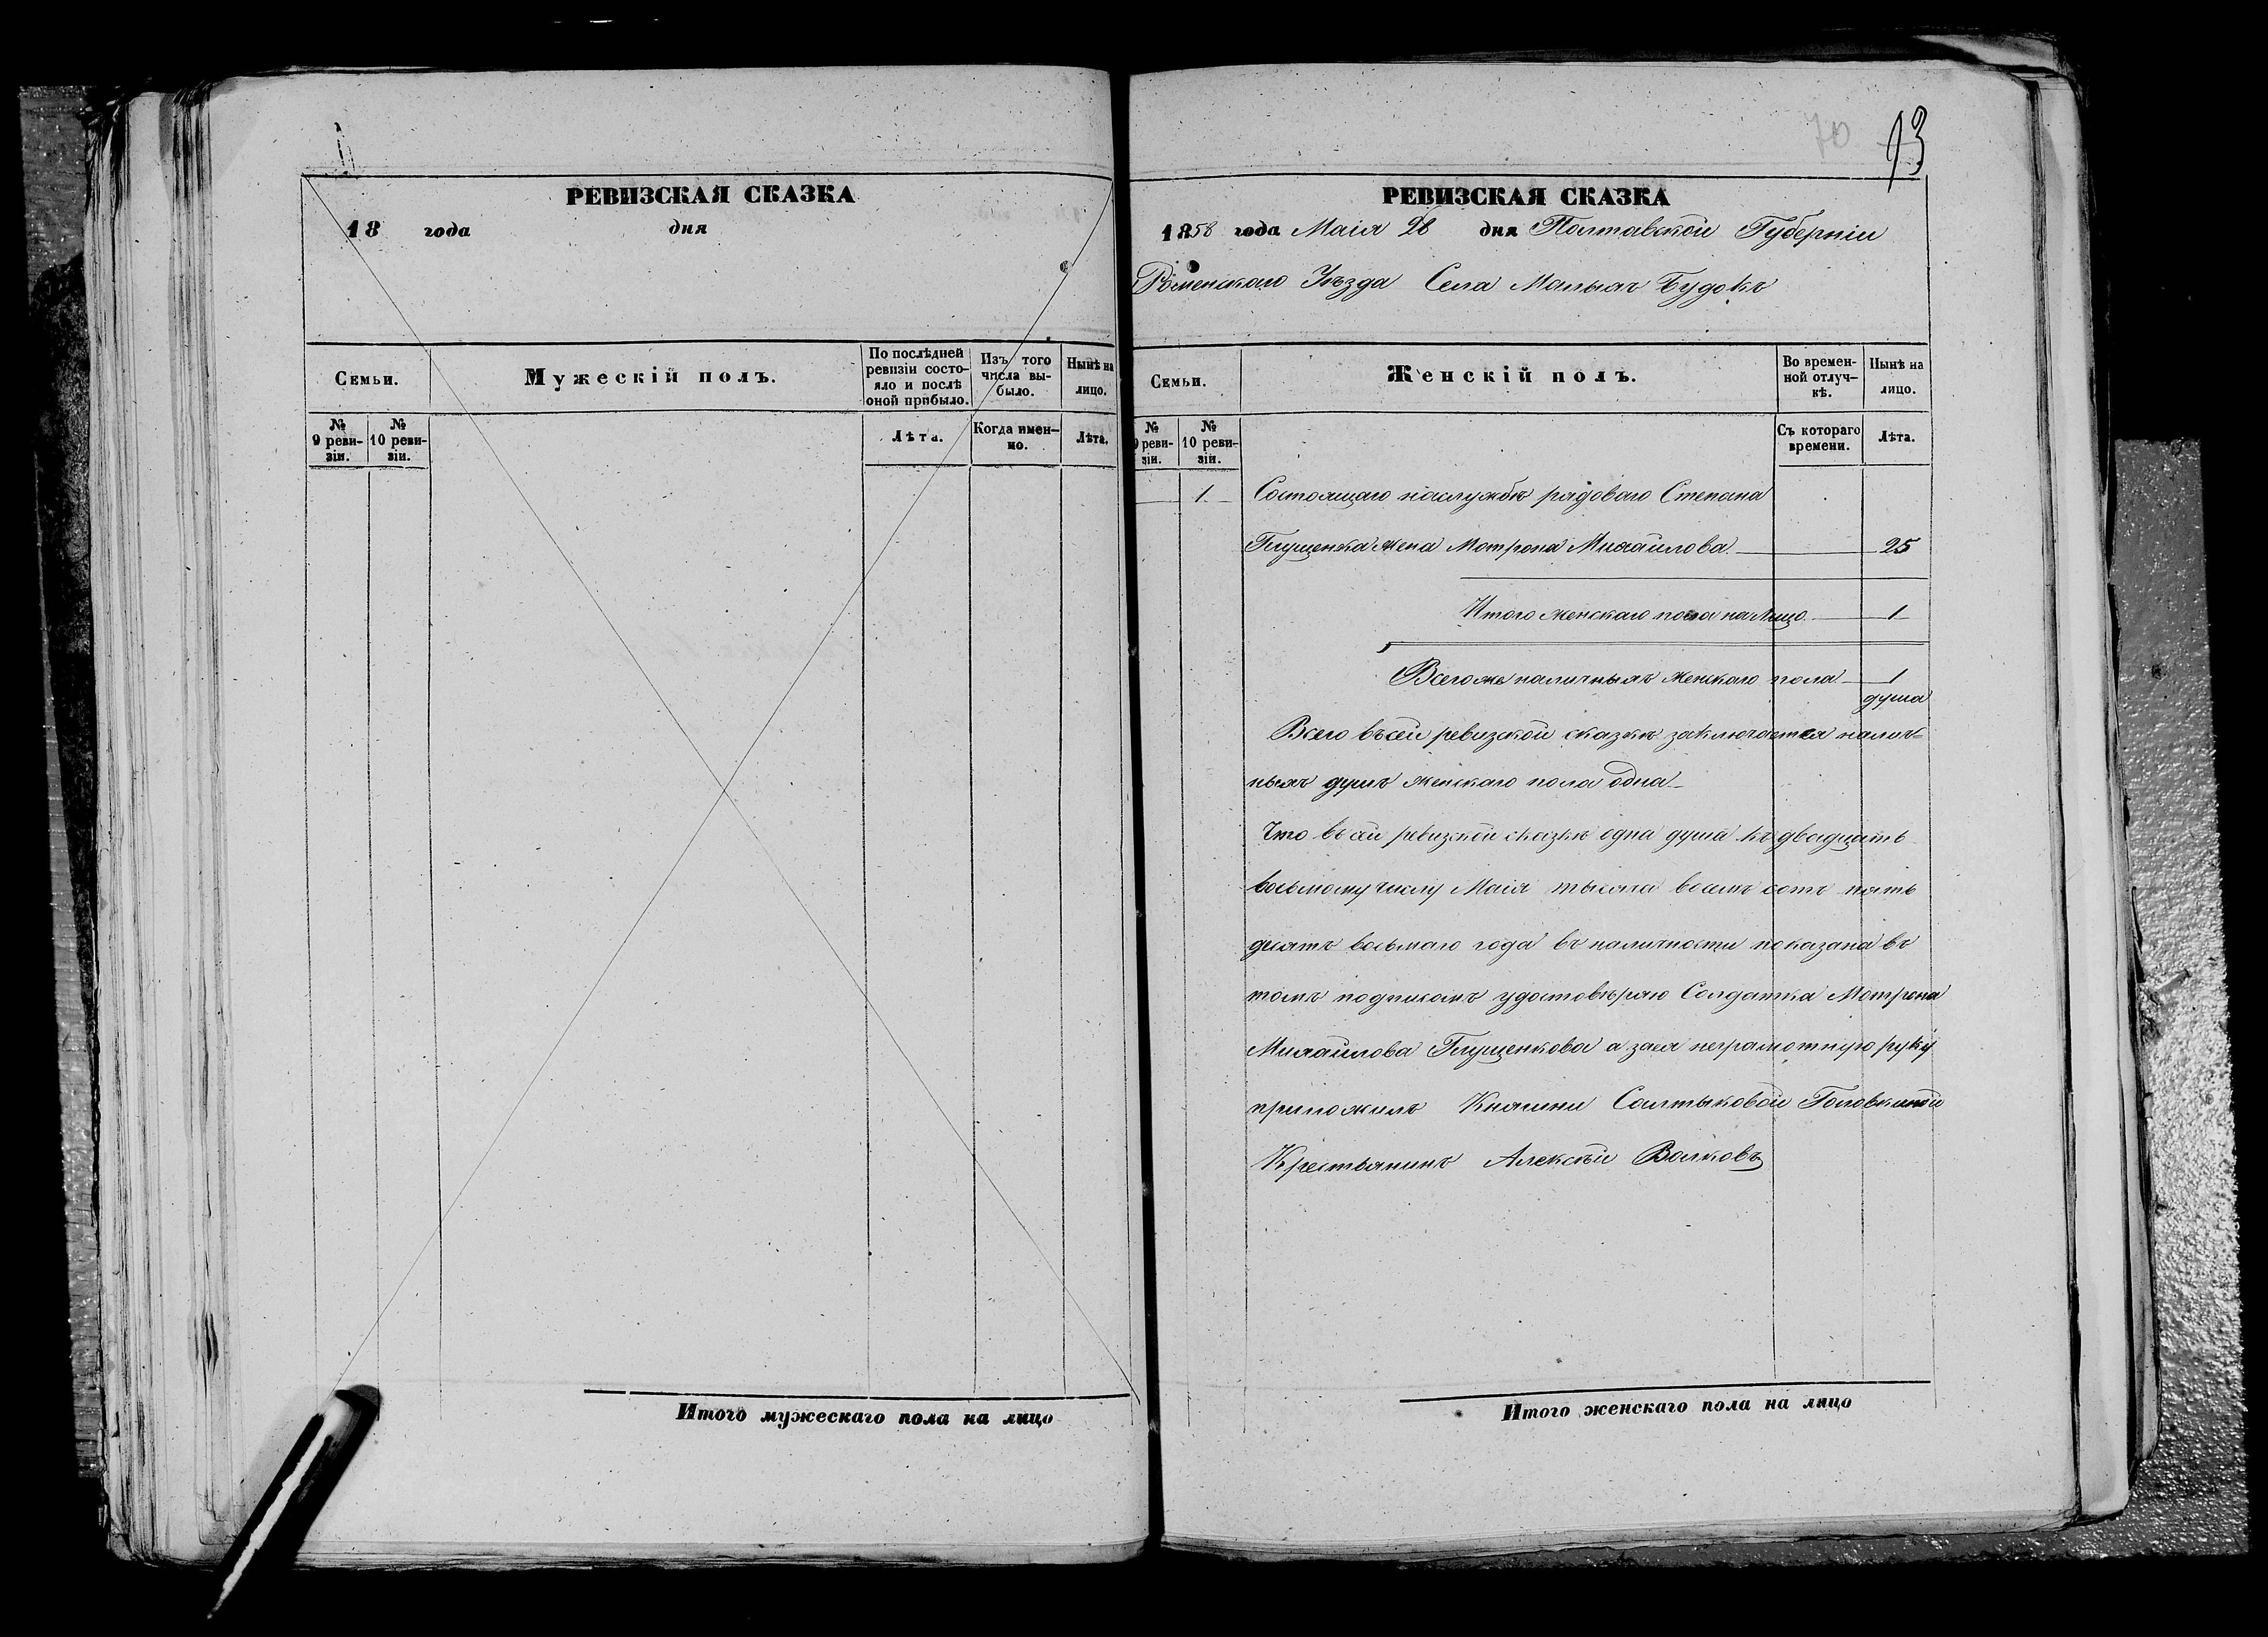 РЕВИЗСКАЯ СКАЗКА
18 года дня
Семьи.
Мужескій полъ.
По послѣдней ревизіи состо-
яло и послѣ
оной прибыло.
Изъ того
числа вы-
было.
Нынѣ на
лицо.
№
9 реви-
зіи.
№
10 реви-
зіи.
Лѣта.
Когда имен-
но.
Лѣта.
Итого мужескаго пола на лицо
70
93
РЕВИЗСКАЯ СКАЗКА
1858 года Маія 28 дня Полтавской Губерніи
Роменскаго Уѣзда Села Малыхъ Будокъ
Семьи.
Женскій полъ.
Во времен-
ной отлуч-
кѣ.
Нынѣ на
лицо.
№
9 реви-
зіи.
№
10 реви-
зіи.
Съ котораго
времени.
Лѣта.
1 Состоящаго наслужбѣ рядоваго Степана
Глущенка жена Мотрона Михайлова 25
Итого женскаго пола на Лицо 1
Всего же наличныхъ женскаго пола 1
душа
Всего въ сей ревизской сказкѣ заключается налич-
ныхъ душъ женскаго пола одна
Что въ сей ревизской сказкѣ одна душа къ двадцать
восьмому числу Маія тысяча восемъ сотъ пять
десятъ восьмаго года въ наличности показана въ
томъ подпискомъ удостовѣряю Солдатка Мотрона
Михайлова Глущенкова а за ея неграмотную руку
приложилъ Княгини Салтыковой Головкиной
Крестьянинъ Алексѣй Волковъ
Итого женскаго пола на лицо